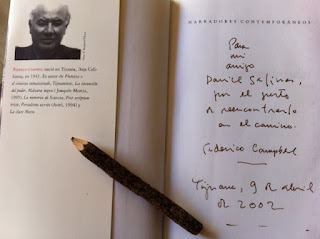 FEDERICO CAMPBELL nació en Tijuana, Baja Cali-
fornia, en 1941. Es autor de Pretexta y
el cronista enmascarado, Tijuanenses, La invención
del poder, Máscara negra (Joaquín Mortiz,
1995), La memoria de Sciascia, Post scriptum
triste, Periodismo escrito (Ariel, 1994) y
La clave Morse.
NARRADORES CONTEMPORÁNEOS
Para
mi
amigo
Daniel Salinas,
por el gusto
de reencontrarlo
en el camino.
Federico Campbell
Tijuana, 9 de abril
de 2002